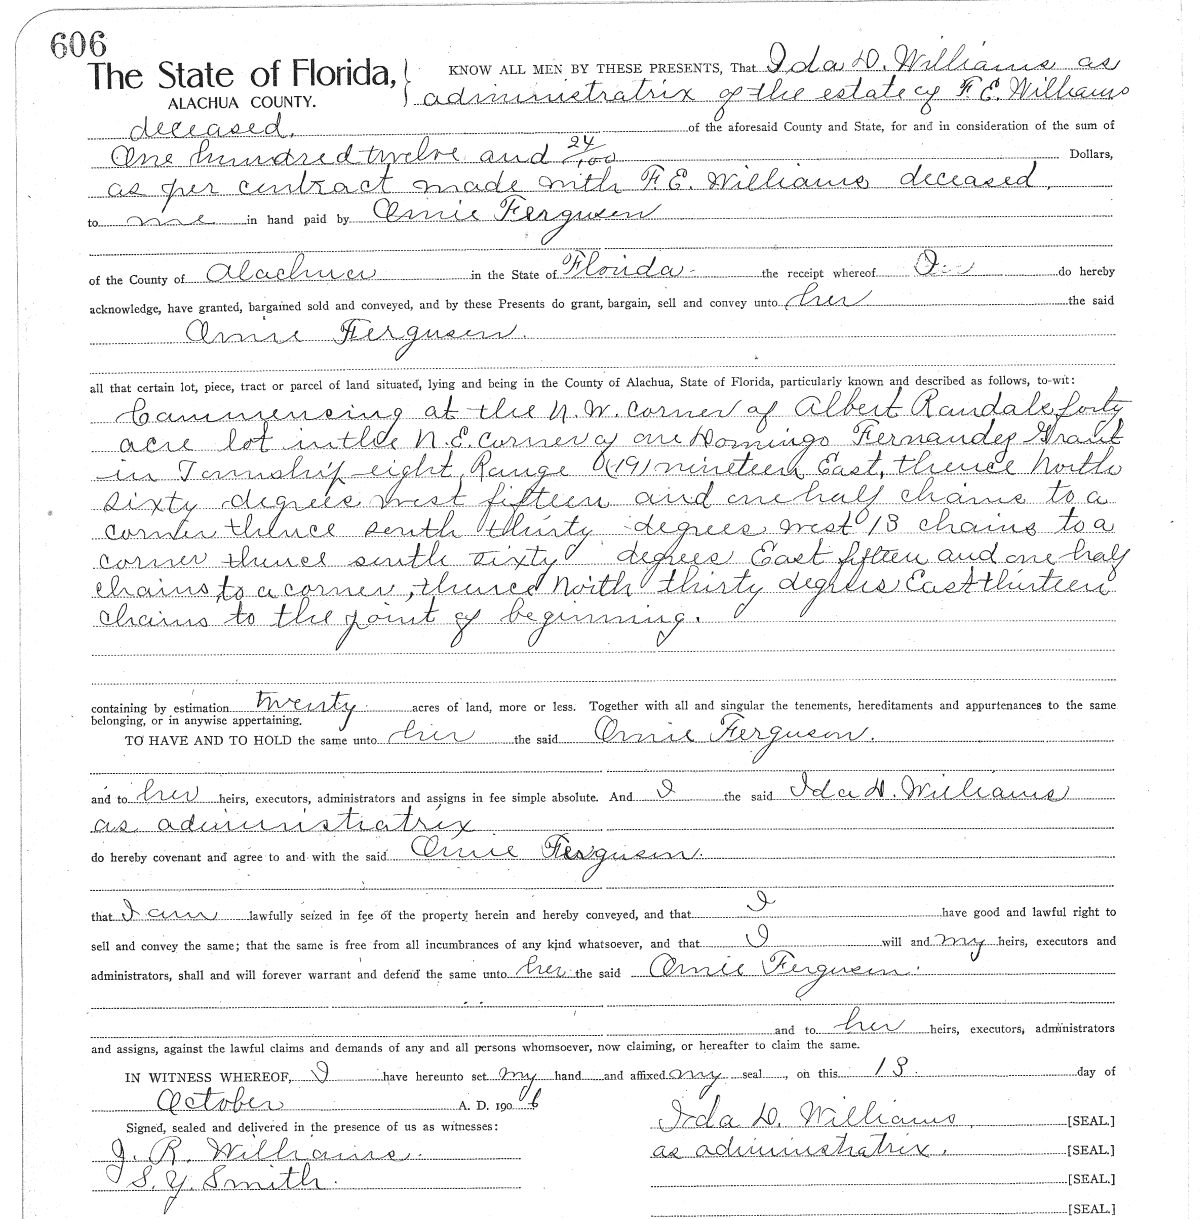 606
The State of Florida,
ALACHUA COUNTY.
KNOW ALL MEN BY THESE PRESENTS, That Ida D. Williams as
administratrix of the estate of F. E. Williams
deceased. of the aforesaid County and State, for and in consideration of the sum of
One hundred twelve and 24/100 Dollars,
as per contract made with F. E. Williams deceased.
to me in hand paid by Omie Ferguson
of the County of Alachua in the State of Florida. the receipt whereof I do hereby
acknowledge, have granted, bargained sold and conveyed, and by these Presents do grant, bargain, sell and convey unto her the said
Omie Ferguson.
all that certain lot, piece, tract or parcel of land situated, lying and being in the County of Alachua, State of Florida, particularly known and described as follows, to-wit:
Commencing at the N. W. corner of Albert Randals forty
acre lot in the N. E. corner of one Domingo Fernandez Grant
in Township eight, Range (19) nineteen East, thence North
sixty degrees west fifteen and one half chains to a
corner thence south thirty degrees west 13 chains to a
corner thence south sixty degrees East fifteen and one half
chains to a corner, thence North thirty degrees East thirteen
chains to the point of beginning.
containing by estimation twenty acres of land, more or less. Together with all and singular the tenements, hereditaments and appurtenances to the same
belonging, or in anywise appertaining.
TO HAVE AND TO HOLD the same unto her the said Omie Ferguson.
and to her heirs, executors, administrators and assigns in fee simple absolute. And I the said Ida D. Williams
as administratrix
do hereby covenant and agree to and with the said Omie Ferguson.
that I am lawfully seized in fee of the property herein and hereby conveyed, and that I have good and lawful right to
sell and convey the same; that the same is free from all incumbrances of any kind whatsoever, and that I will and my heirs, executors and
administrators, shall and will forever warrant and defend the same unto her the said Omie Ferguson.
and to her heirs, executors, administrators
and assigns, against the lawful claims and demands of any and all persons whomsoever, now claiming, or hereafter to claim the same.
IN WITNESS WHEREOF, I have hereunto set my hand and affixed my seal, on this 13 day of
October A. D. 1906
Signed, sealed and delivered in the presence of us as witnesses:
J. R. Williams.
S. Y. Smith.
Ida D. Williams [SEAL.]
as administratrix. [SEAL.]
[SEAL.]
[SEAL.]